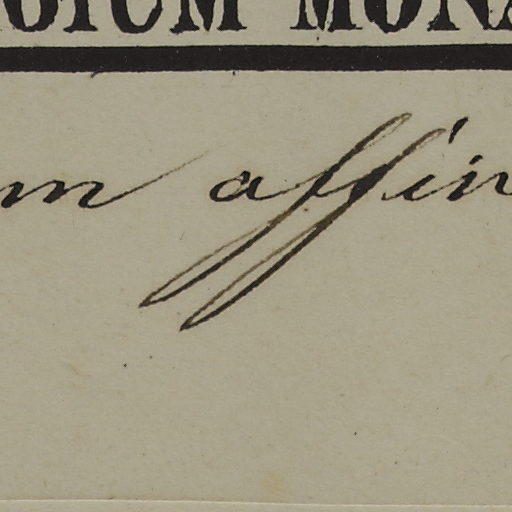 GIUM MONA
m affin